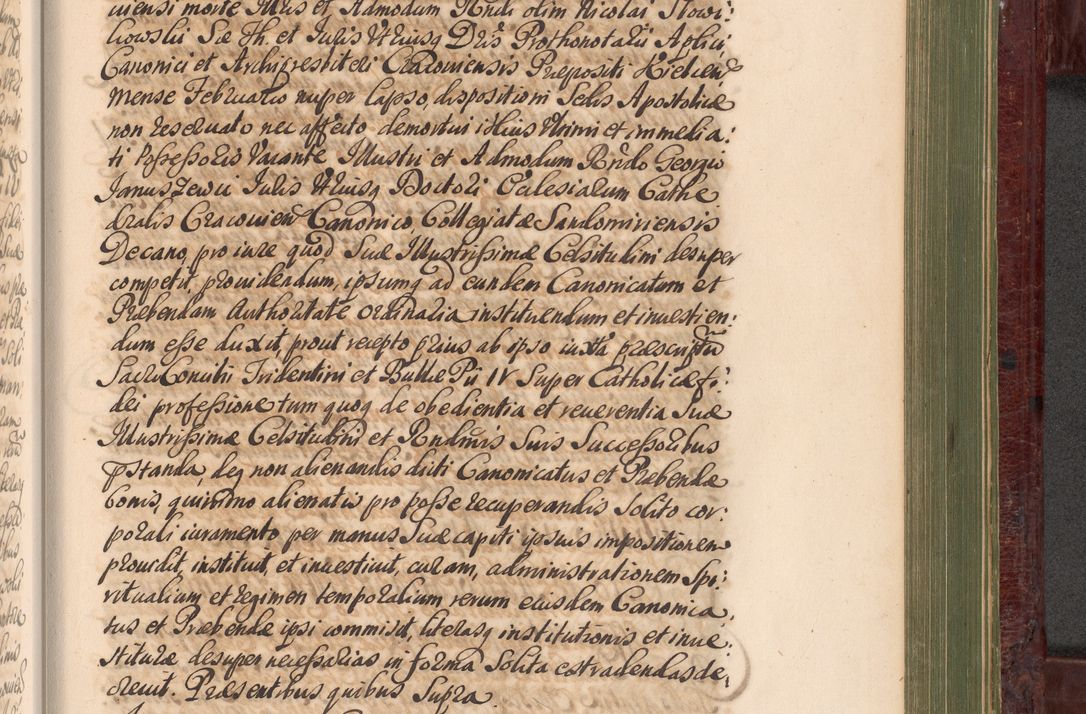 uiensi morte Illus et Admodum Rndi olim Nicolai Słowi:
kowski Sae Th. et Iuris Utriusq Dris Prothonotarii Aplici
Canonici et Archipresbiteri Cracouiensis Praepositi Kielcen
Mense Februario nuper lapso, dispositioni Sedis Apostolicae
non reseruato nec affecto demortui illius Ultimi et immedia:
ti Possessoris Vacante Illustri et Admodum Rndo Georgio
Januszewic Iuris Utriusq Doctori Ecclesiarum Cathe
dralis Cracouien Canonico, Collegiatae Sandomiriensis
Decano, pro iure quod Suae Illustrissimae Celsitudini desuper
competit, prouidendum, ipsumq ad eundem Canonicatum et
Praebendam Authoritate ordinaria instituendum et inuestien:
dum esse duxit, prout recepto prius ab ipso iuxta praescriptu
Sacri Concilii Tridentini et Bullae Pii IV Super Catholicae fi:
dei professione tum quoq de obedientia et reuerentia Suae
Illustrissimae Celsitudini et Rndmis Suis Successoribus
pstanda, deq non alienandis dicti Canonicatus et Praebendae
bonis, quinimo alienatis pro posse recuperandis Solito cor:
porali iuramento per manus Suae capiti ipsius impositionem
prouidit, instituit, et inuestiuit, curam, administrationem Spi:
ritualium et regimen temporalium rerum eiusdem Canonica,
tus et Praebendae ipsi commisit, literasq institutionis et inue:
stiturae desuper necessarias in forma Solita extradendas de:
creuit. Praesentibus quibus Supra.